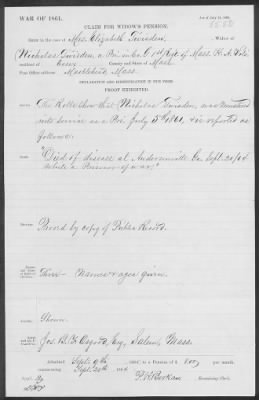 WAR OF 1861.
CLAIM FOR WIDOW'S PENSION.
Brief in the case of Mrs. Elizabeth Twisden, Widow of
Nicholas Twisden, a Pri. in Co. C 1st Regt. of Mass. H. A. Vols.
Resident of Essex County and State of Mass.
Post Office address: Marblehead, Mass.
DECLARATION AND IDENTIFICATION IN DUE FORM.
PROOF EXHIBITED.
The Rolls show that Nicholas Twisden, was mustered
into service as a Pri. July 5th 1861, & is reported as
follows:
"Died of disease at Andersonville Ga. Sept. 20/64
while a Prisoner of war."
Proved by copy of Public Records.
Three names & ages given.
Shown.
Jos. B. F. Osgood, Esq, Salem, Mass.
Admitted Sept. 9th to a Pension of $ 8.00 per month,
commencing Sept. 20th 1864
Examining Clerk.